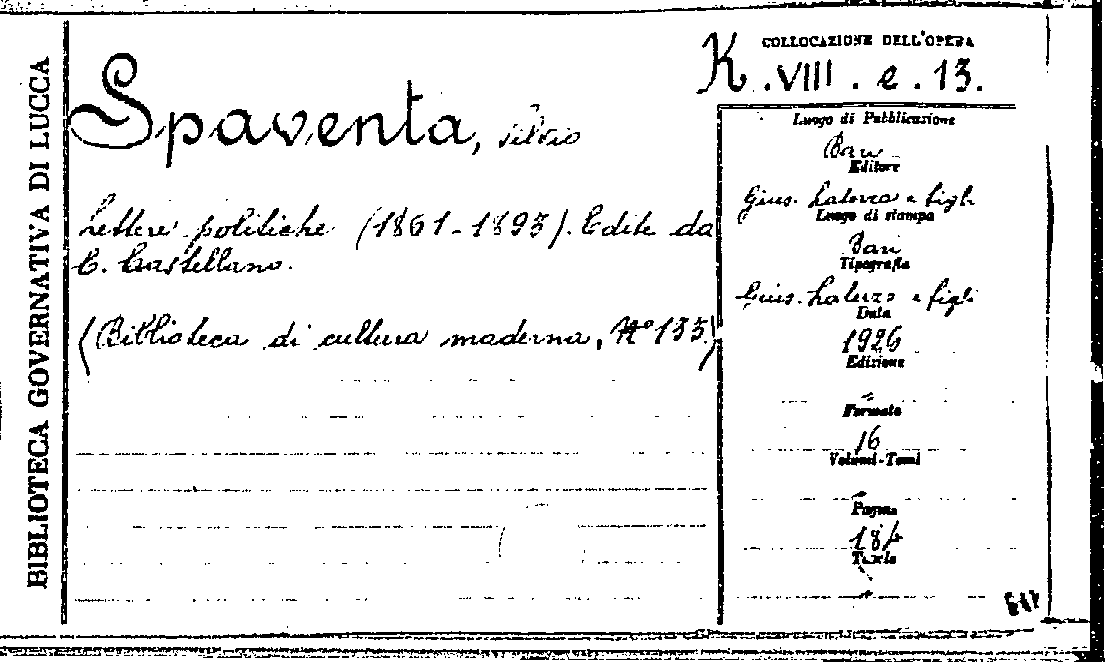 BIBLIOTECA GOVERNATIVA DI LUCCA
COLLOCAZIONE DELL'OPERA
K.VIII.e.13.
Spaventa, Silvio
Lettere politiche (1861-1893). Edite da
C. Castellano.
(Biblioteca di cultura moderna, N° 133)
Luogo di Pubblicazione
Bari
Editore
Gius. Laterza e figli
Luogo di stampa
Bari
Tipografia
Gius. Laterza e figli
Data
1926
Edizione
Formato
16
Volumi-Tomi
Pagine
Tavole